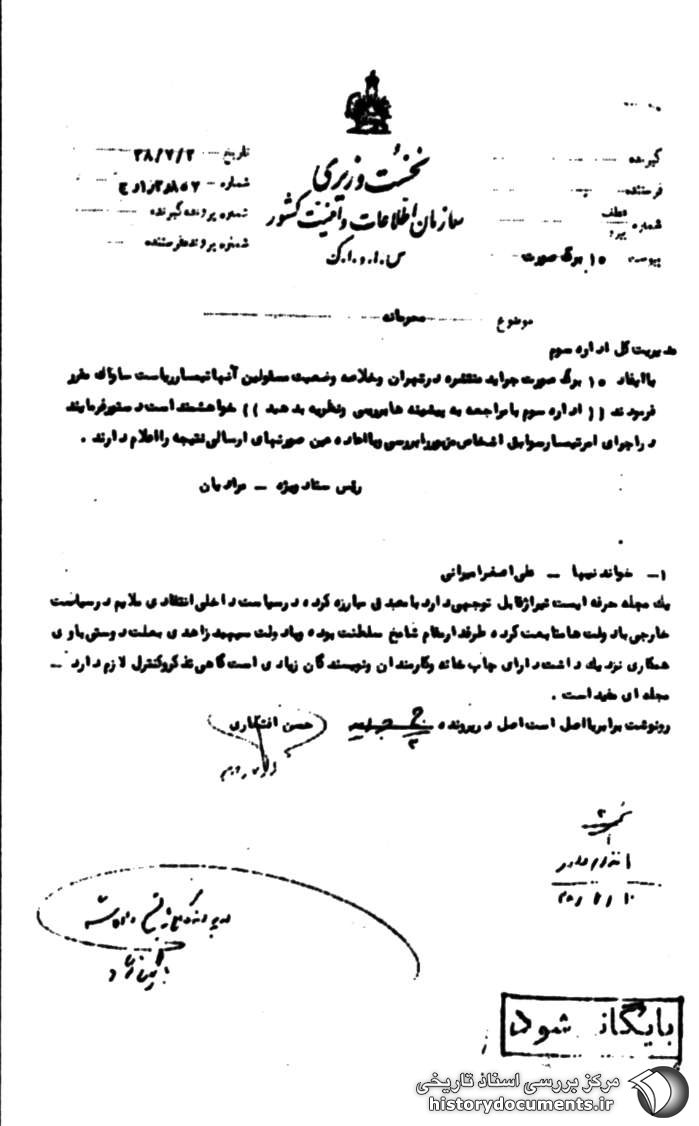 نخست وزیری
سازمان اطلاعات و امنیت کشور
س.ا.و.ا.ک
گیرنده
فرستنده
شماره عطف پیرو
پیوست ۱۵ برگ صورت
تاریخ ۳۸/۷/۲
شماره
شماره پرونده گیرنده
شماره پرونده فرستنده
موضوع محرمانه
مدیریت کل اداره سوم
با ایفاد ۱۵ برگ صورت جراید منتشره در تهران و خلاصه وضعیت مسئولین آنها تیمسار ریاست ساواک مقرر
فرمودند (( اداره سوم با مراجعه به پیشینه ها بررسی و نظریه بدهید )) خواهشمند است دستور فرمایند
در اجرای امر تیمسار سوابق اشخاص مزبور را بررسی و با اعاده عین صورتهای ارسالی نتیجه را اعلام دارند .
رئیس ستاد ویژه – مرادیان
۱- خواندنیها – علی اصغر امیرانی
یک مجله حرفه ایست تیراژ قابل توجهی دارد با مصدق مبارزه کرده در سیاست داخلی انتقادی ملایم در سیاست
خارجی با دولت ها متابعت کرده طرفدار مقام شامخ سلطنت بوده و با دولت سپهبد زاهدی بعلت دوستی با وی
همکاری نزدیک داشت دارای چاپ خانه و کارمندان و نویسندگان زیادی است گاهی تذکر و کنترل لازم دارد –
مجله ای مفید است .
رونوشت برابر با اصل است اصل در پرونده
حسن افتخاری
بایگانی شود
مرکز بررسی اسناد تاریخی
historydocuments.ir